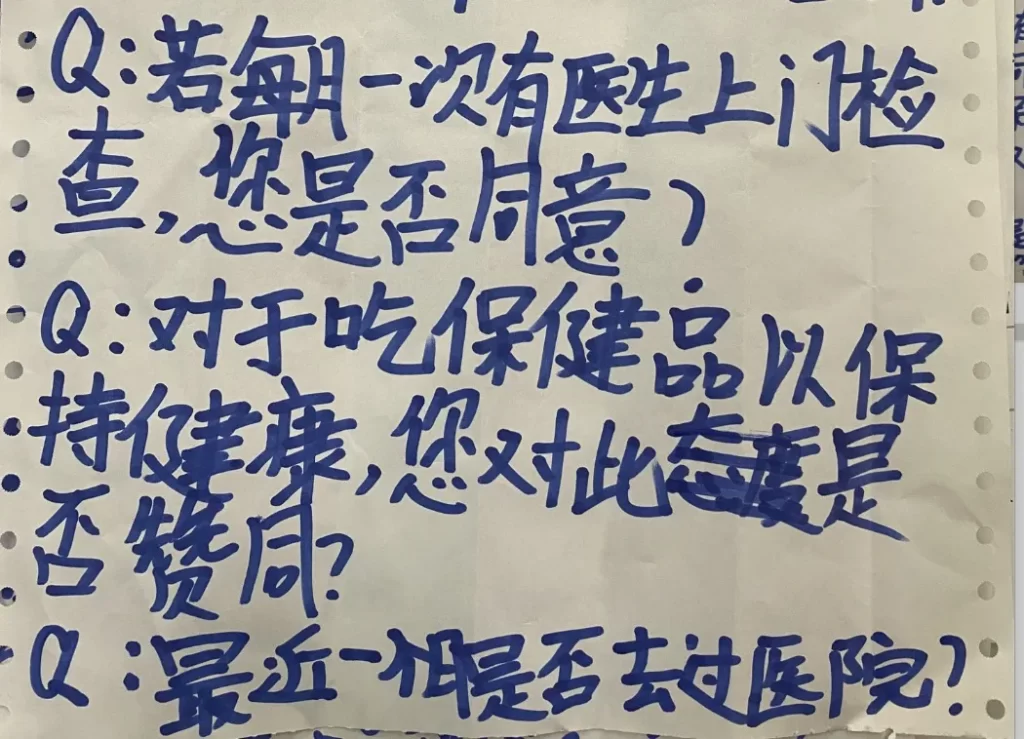 Q:若每月一次有医生上门检
查,您是否同意?
Q:对于吃保健品以保
持健康,您对此态度是
否赞同?
Q:最近一个月是否去过医院?